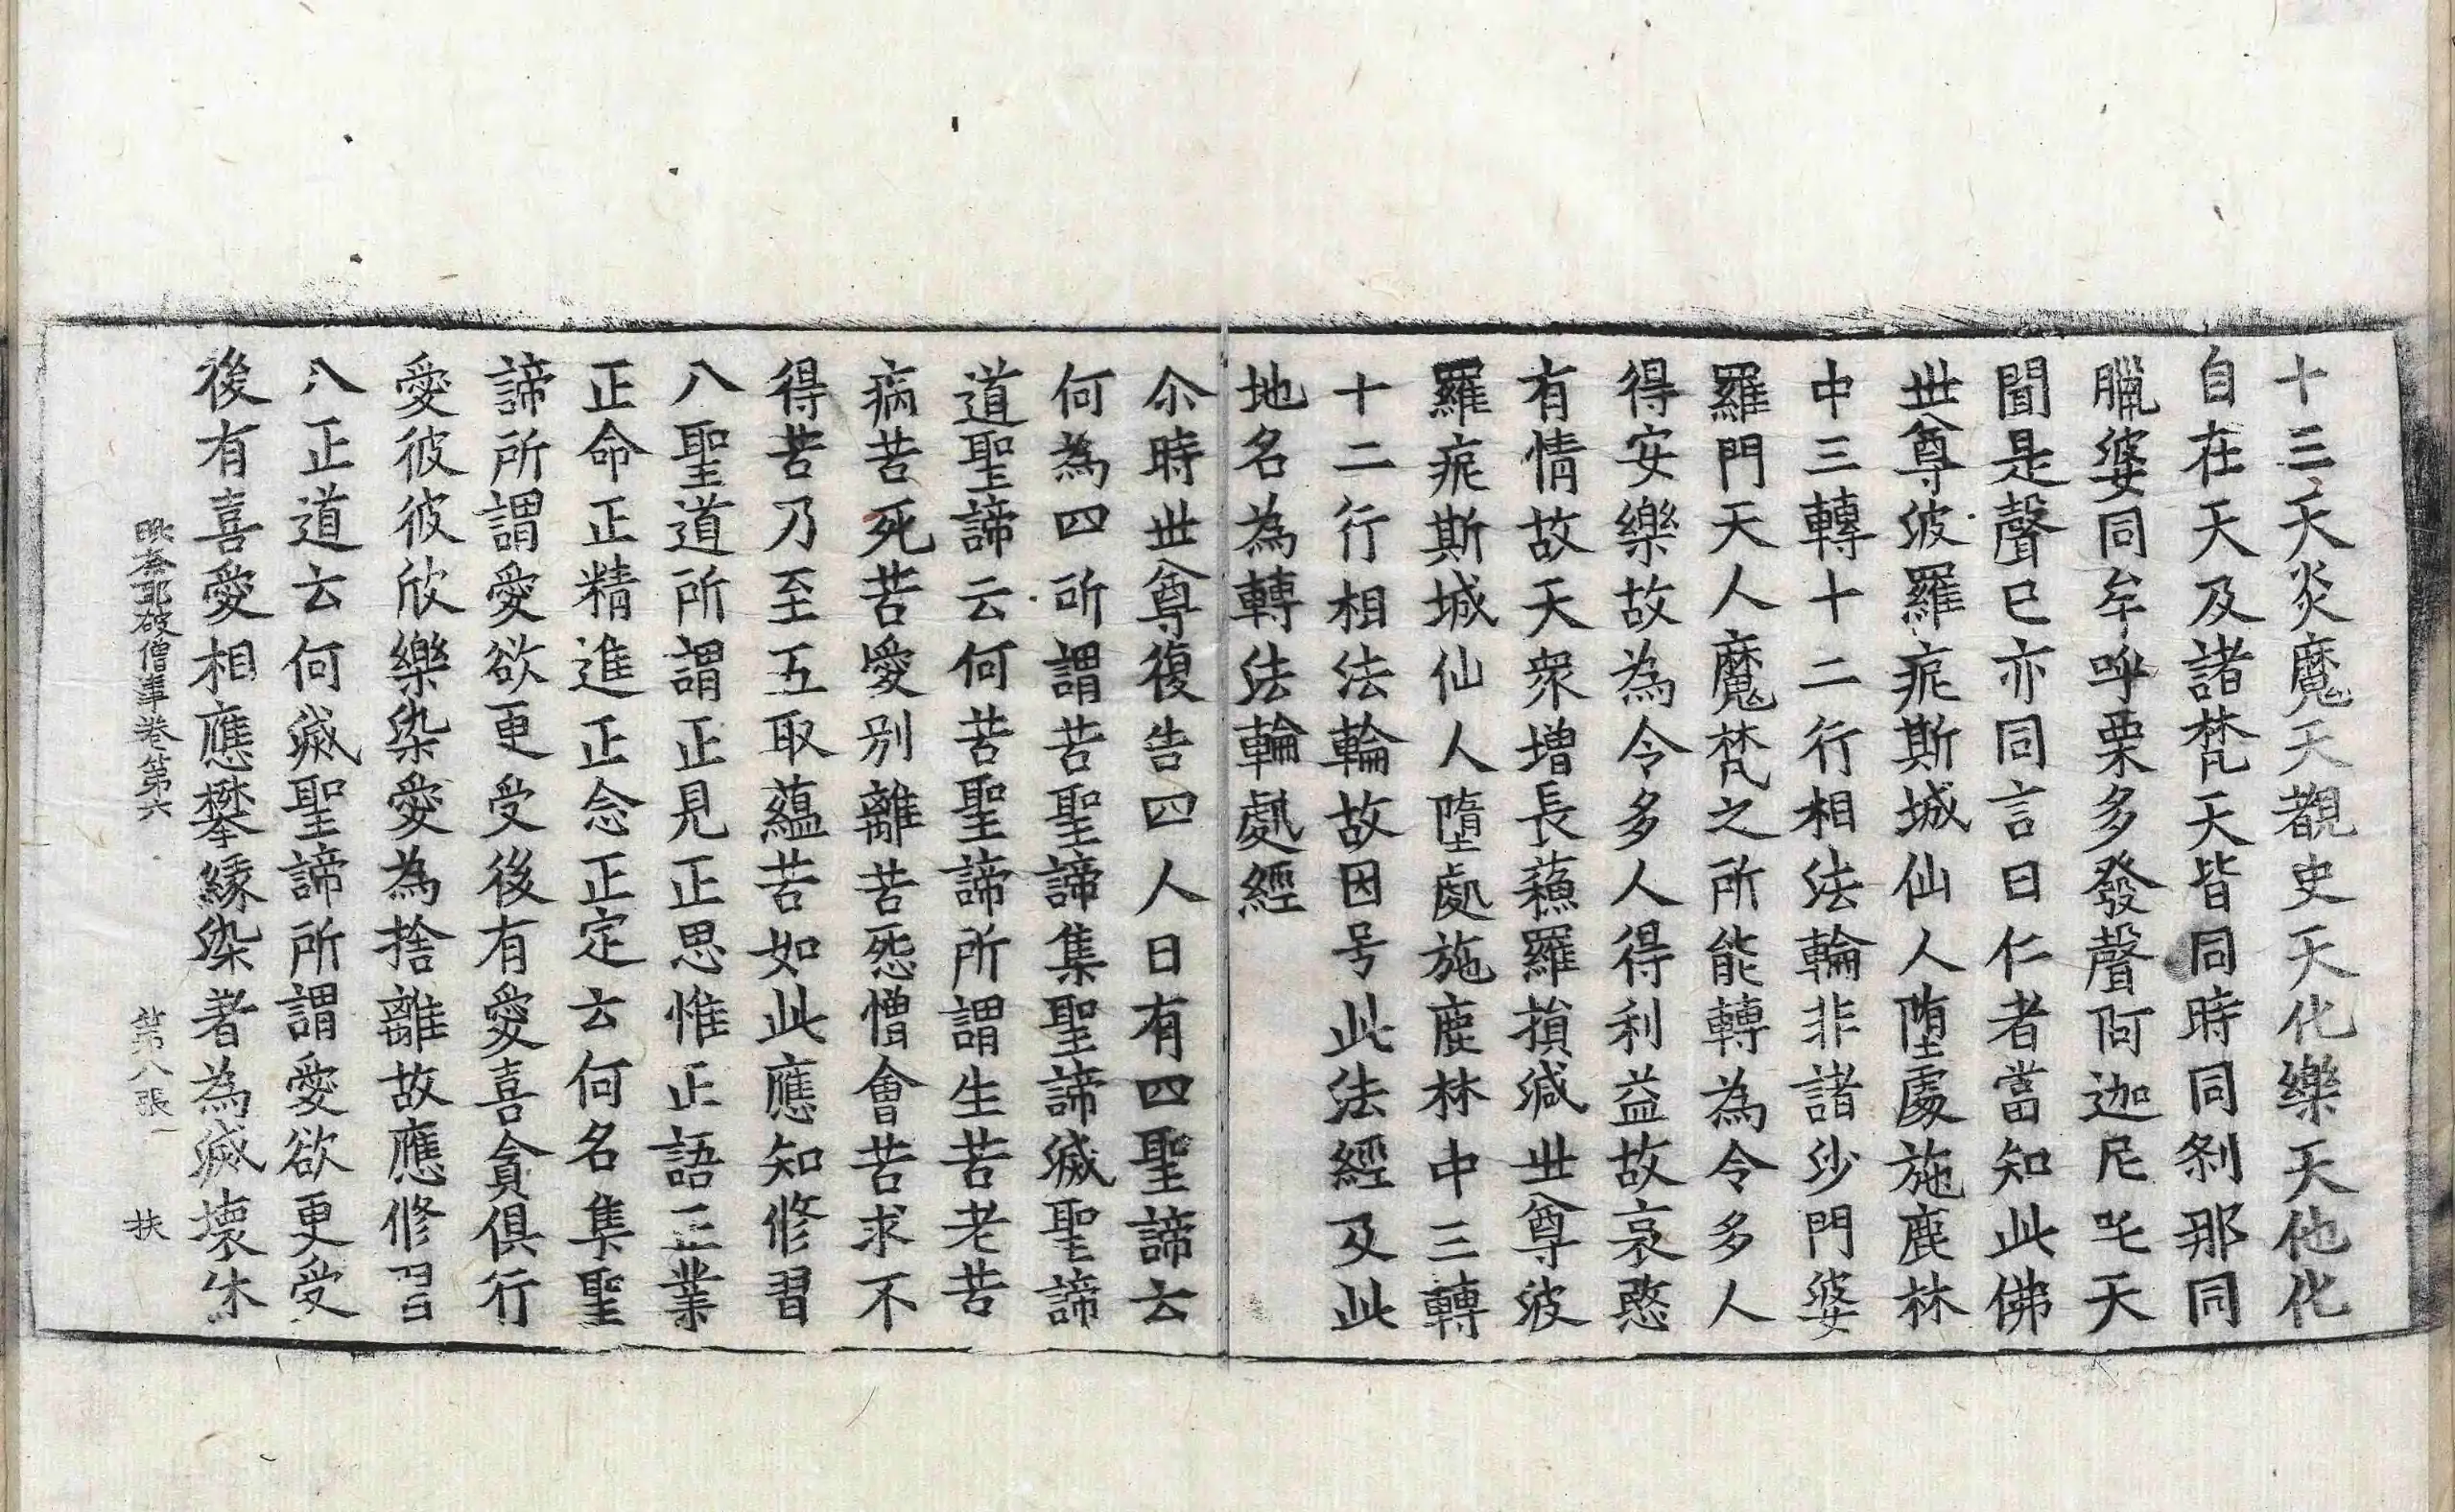 十三天炎魔天覩史天化樂天他化
自在天及諸梵天皆同時同刹那同
臘婆同牟呼栗多發聲阿迦尼吒天
聞是聲已亦同言曰仁者當知此佛
世尊波羅痆斯城仙人墮處施鹿林
中三轉十二行相法輪非諸沙門婆
羅門天人魔梵之所能轉為令多人
得安樂故為令多人得利益故哀愍
有情故天衆增長蘓羅損減世尊波
羅痆斯城仙人墮處施鹿林中三轉
十二行相法輪故因号此法經及此
地名為轉法輪處經
尒時世尊復告四人曰有四聖諦云
何為四所謂苦聖諦集聖諦滅聖諦
道聖諦云何苦聖諦所謂生苦老苦
病苦死苦愛別離苦怨憎會苦求不
得苦乃至五取蘊苦如此應知修習
八聖道所謂正見正思惟正語正業
正命正精進正念正定云何名集聖
諦所謂愛欲更受後有愛喜貪俱行
愛彼彼欣樂染愛為捨離故應修習
八正道云何滅聖諦所謂愛欲更受
後有喜愛相應攀緣染著為滅壞休
毗奈耶破僧事卷第六 第八張 扶